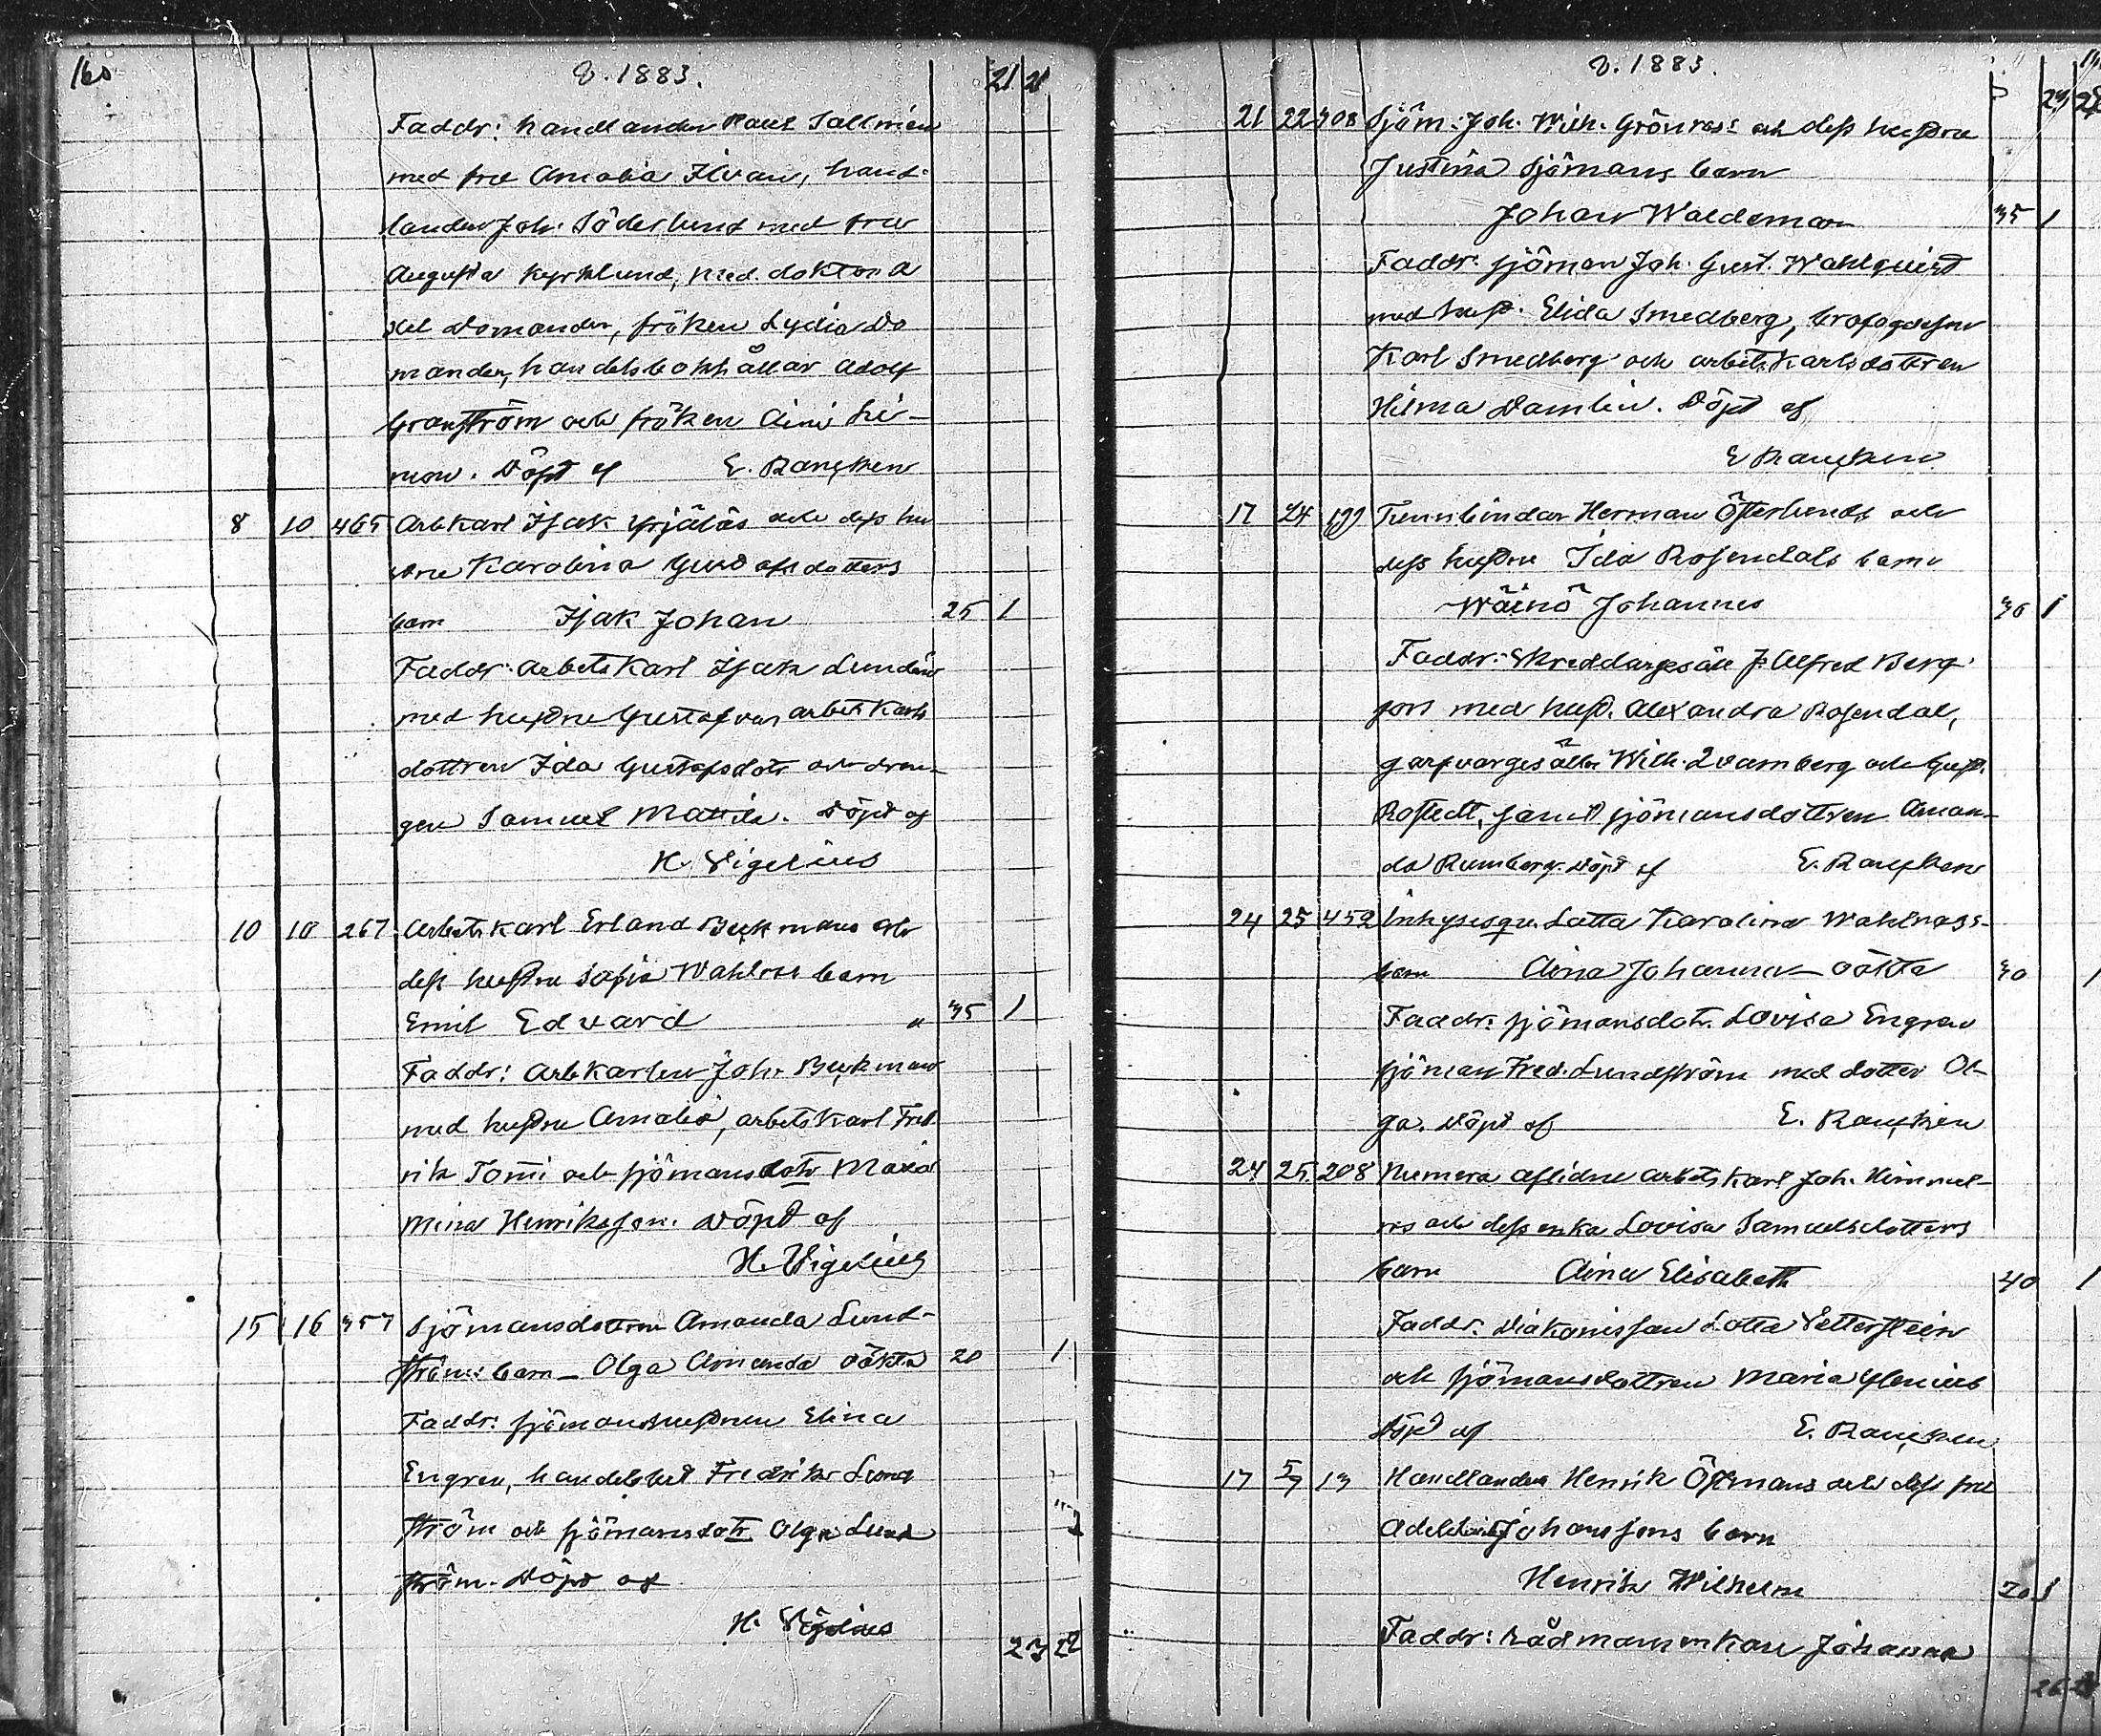 160
v. 1883.
21 21
Faddr: handlanden Paul Sallmén
med fru Amalia Ilvan, hand-
landen Joh. Söderlund med fru
Augusta Kyrklund, med. doktor A
xel Domander, fröken Lydia Do
mander, handelsbokhållar Adolf
Granström och fröken Aini Li-
mon. Döpt af E. Rancken
8 10 465 Arbkarl Isak Yrjäläs och dess hu
stru Karolina Gustafsdotters
barn Isak Johan 25 1
Faddr: Arbetskarl Isak Lundén
med hustru Gustafva, arbetskarls
dottren Ida Gustafsdotr och dren-
gen Samuel Matts. Döpt af
K. Vigelius
10 10 267 Arbetskarl Erland Beckmans och
dess hustru Sofia Wahlroos barn
Emil Edvard 35 1
Faddr: Arbkarlen Joh. Beckman
med hustru Amalia, arbetskarl Fred
rik Tomi och sjömansdotr Maria
Mina Henriksson. Döpt af
H. Vigelius
15 16 357 Sjömansdottren Amanda Lund-
ströms barn Olga Amanda oäkta 20 1
Faddr: sjömanshustrun Elina
Engren, handelsbet Fredrik Lund
ström och sjömansdotr Olga Lund
ström. Döpt af
H. Vigelius
23 22
v. 1883.
21 22 408 Sjöm. Joh. Wilh. Grönroos och dess hustru
Justina Sjömans barn
Johan Waldemar 35 1
Faddr: sjöman Joh. Gust. Wahlquist
med hust. Elida Smedberg,
Karl Smedberg och arbetskarlsdottren
Hilma Damlin. Döpt af
E Rancken
17 24 Tunnbindar Herman Österlunds och
dess hustru Ida Rosendals barn
Wäinö Johannes 30 1
Faddr: Skreddargesäll J. Alfred Berg
fors med hust. Alexandra Rosendal,
garfvargesälln Wilh. Qvarnberg och Gust.
Rostedt, samt sjömansdottren Aman-
da Rumberg. Döpt af E. Rancken
24 25 452 Inhysesqv. Lotta Karolina Wahlroos
barn Aina Johanna oäkta 30 1
Faddr: sjömansdotr. Lovisa Engren
sjöman Fred. Lundström med dotter Ol-
ga. Döpt af E. Rancken
24 25 208 Numera aflidne arbetskarl Joh. Himmel-
ros och dess enka Lovisa Samuelsdotters
barn Aina Elisabeth 40 1
Faddr: Diakonissan Lotta Zetterstein
och sjömansdottren Maria Glenius
Döpt af E. Rancken
17 13 Handlanden Henrik Östmans och dess fru
Adelaide Johanssons barn
Henrik Wilhelm 20 1
Faddr: Rådmansenkan Johanna